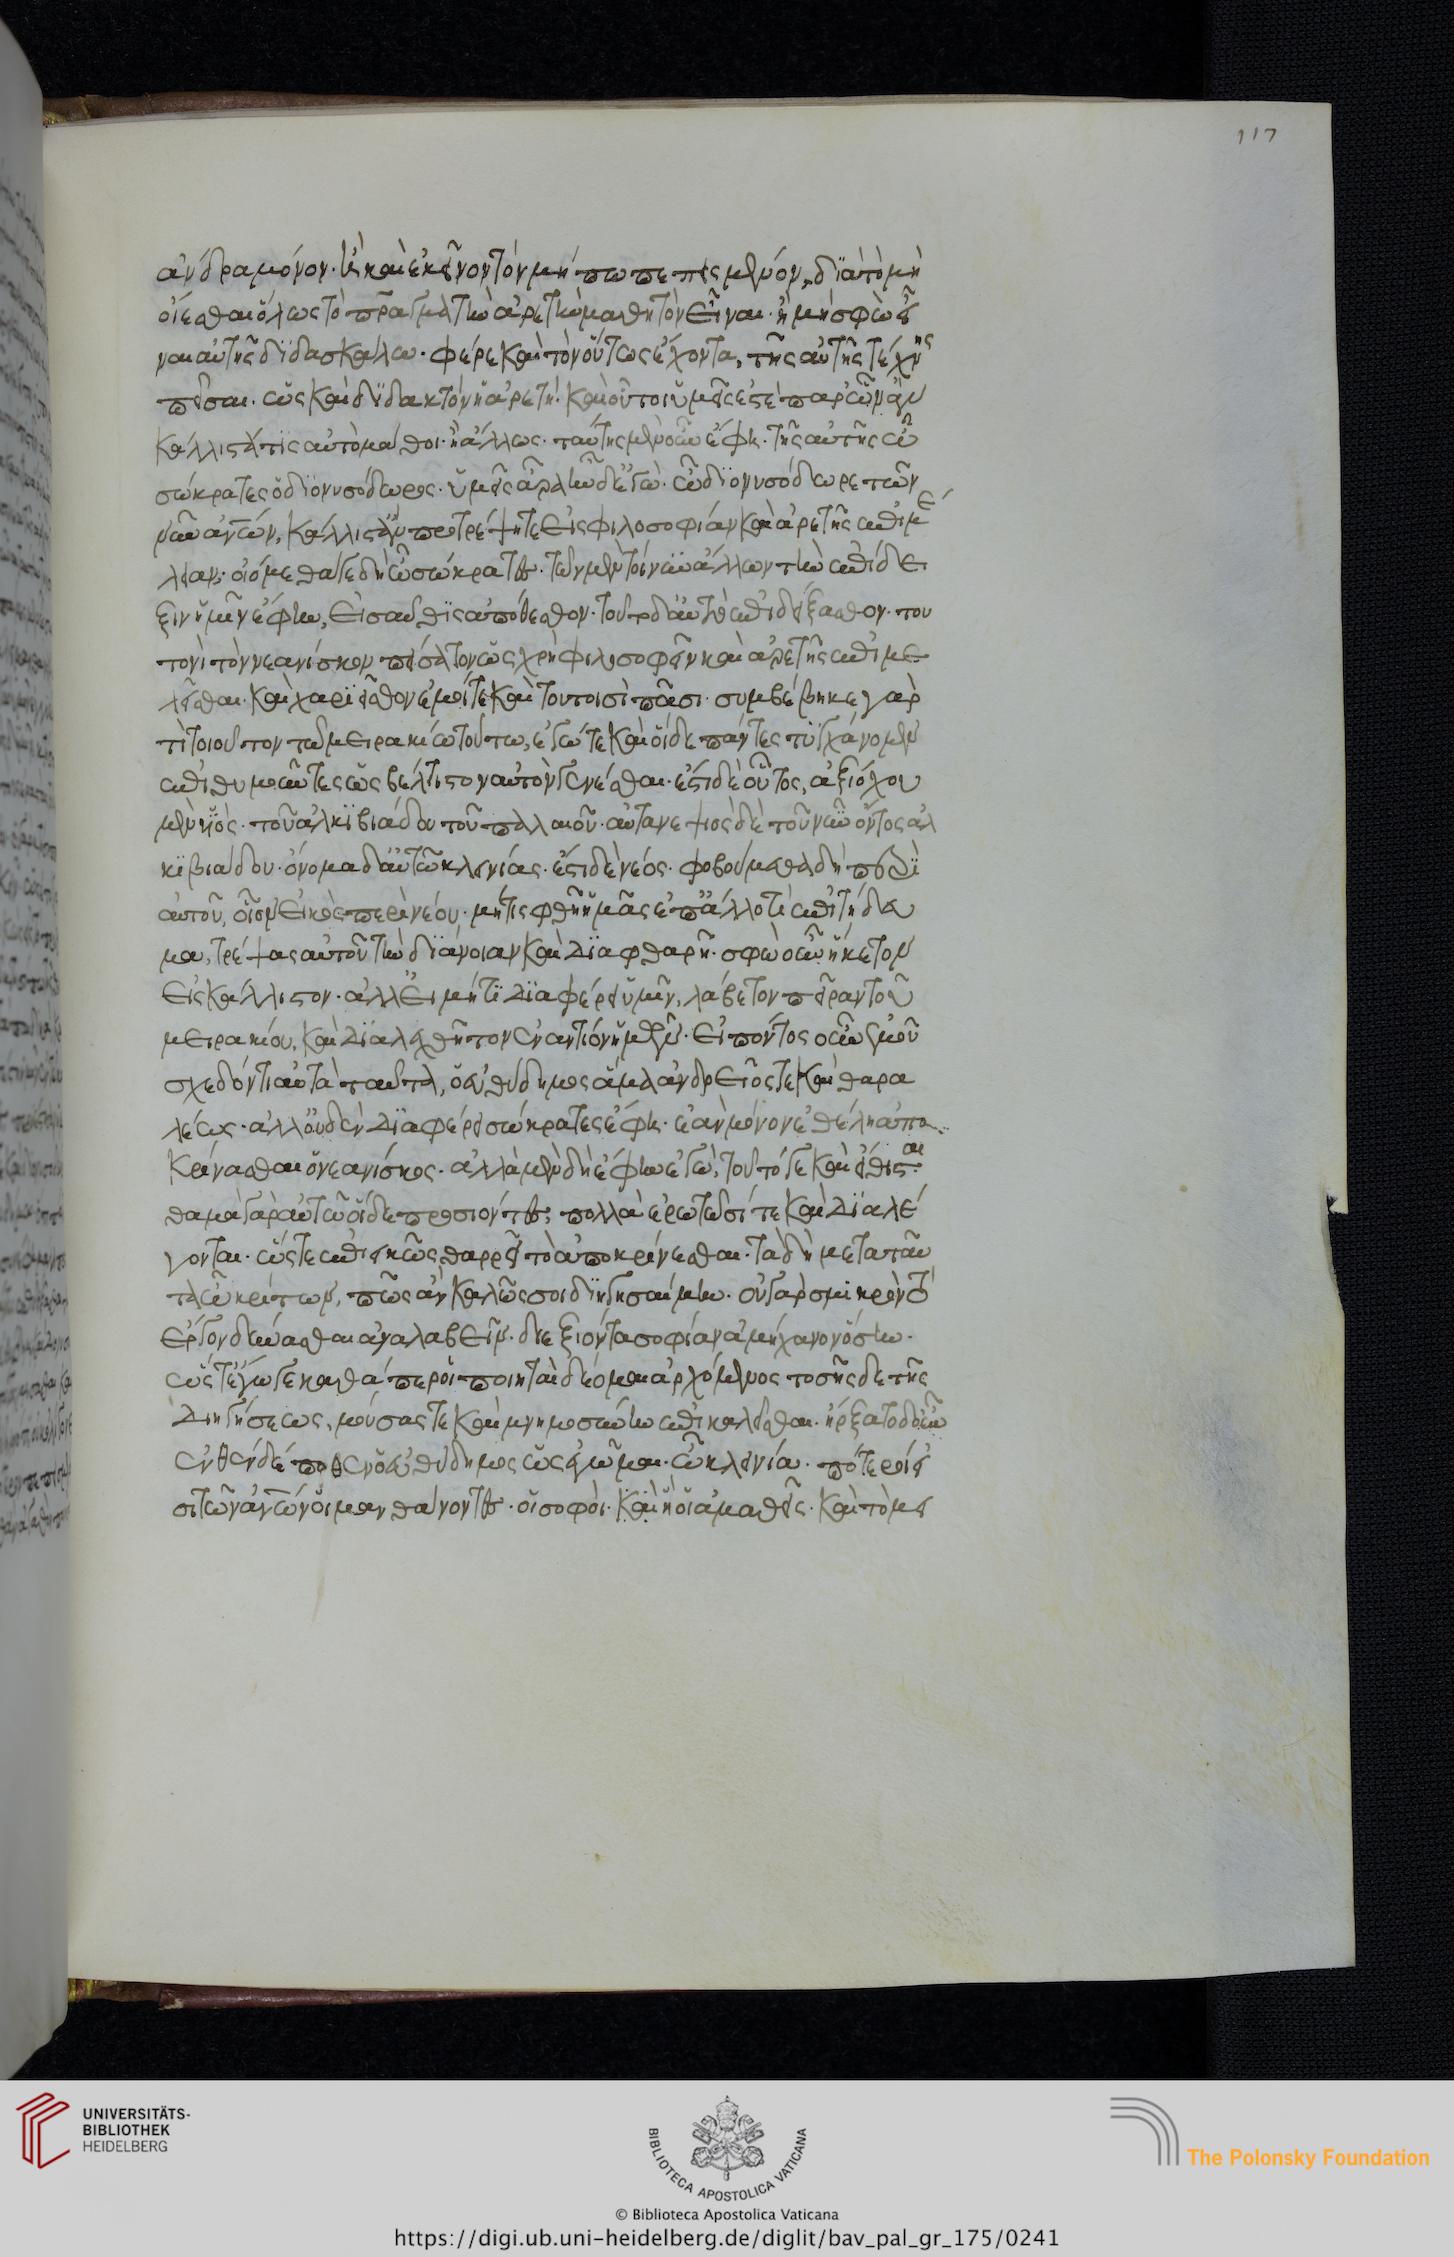 ἄνδρα μόνον. ἢ καὶ ἐκεῖνον τὸν μήπω πεπεισμένον, διὰ τὸ μὴ
οἴεσθαι ὅλως τὸ πρᾶγμα τὴν ἀρετὴν μαθητὸν εἶναι. ἢ μὴ σφὼ εἶ
ναι αὐτῆς διδασκάλω. φέρε καὶ τὸν οὕτως ἔχοντα, τῆς αὐτῆς τέχνης
πεῖσαι. ὡς καὶ διδακτὸν ἡ ἀρετή. καὶ οὗτοι ὑμεῖς ἐστὲ παρ' ὧν ἂν
κάλλιστά τις αὐτὸ μάθοι. ἢ ἄλλως. ταύτης μὲν οὖν ἔφη. τῆς αὐτῆς ὦ
σώκρατες ὁ διονυσόδωρος. ὑμεῖς ἄρα ἦν δ' ἐγώ. ὦ διονυσόδωρε τῶν
νῦν ἀνῶν, κάλλιστ' ἂν προτρέψητε εἰς φιλοσοφίαν καὶ ἀρετῆς ἐπιμέ
λειαν. οἰόμεθά γε δὴ ὦ σώκρατες. τῶν μὲν τοίνυν ἄλλων τὴν ἐπίδει
ξιν ἡμῖν ἔφην, εἰσαῦθις ἀπόθεσθον. τοῦτο δ' αὐτὸ ἐπιδείξασθον. του
τονὶ τὸν νεανίσκον πείσατον ὡς χρὴ φιλοσοφεῖν καὶ ἀρετῆς ἐπιμε
λεῖσθαι. καὶ χαριεῖσθον ἐμοί τε καὶ τουτοισὶ πᾶσι. συμβέβηκε γὰρ
τὶ τοιοῦτον τῶ μειρακίω τούτω, ἐγώ τε καὶ οἵδε πάντες τυγχάνομεν
ἐπιθυμοῦντες ὡς βέλτιστον αὐτὸν γενέσθαι. ἔστι δὲ οὗτος, ἀξιόχου
μὲν ὑός. τοῦ ἀλκιβιάδου τοῦ παλαιοῦ. αὐτανεψιὸς δὲ τοῦ νῦν ὄντος ἀλ
κιβιάδου. ὄνομα δ' αὐτῶ κλεινίας. ἔστι δὲ νέος. φοβούμεθα δὴ περὶ
αὐτοῦ, οἷον εἰκὸς περὶ νέου. μή τις φθῆ ἡμᾶς ἐπ' ἄλλο τι ἐπιτήδευ
μα, τρέψας αὐτοῦ τὴν διάνοιαν καὶ διαφθαρῆ. σφὼ οὖν ἥκετον
εἰς κάλλιστον. ἀλλ' εἰ μή τι διαφέρει ὑμῖν, λάβετον πεῖραν τοῦ
μειρακίου, καὶ διαλέχθητον ἐναντίον ἡμῶν. εἰπόντος οὖν ἐμοῦ
σχεδόν τι αὐτὰ ταῦτα, ὁ εὐθύδημος ἅμα ἀνδρείως τε καὶ θαρα
λέως. ἀλλ' οὐδὲν διαφέρει σώκρατες ἔφη. ἐὰν μόνον ἐθέλη ἀπο
κρίνασθαι ὁ νεανίσκος. ἀλλὰ μὲν δὴ ἔφην ἐγώ, τοῦτό γε καὶ εἴθισται
θαμὰ γὰρ αὐτῶ οἵδε προσιόντες, πολλὰ ἐρωτῶσί τε καὶ διαλέ
γονται. ὥστε ἐπιεικῶς θαρρεῖ τὸ ἀποκρίνεσθαι. τὰ δὴ μετὰ ταῦ
τα ὦ κρίτων, πῶς ἂν καλῶς σοι διηγησαίμην. οὐ γὰρ σμικρὸν τὸ
ἔργον δύνασθαι ἀναλαβεῖν. διεξιόντα σοφίαν ἀμήχανον ὅσην.
ὥστ' ἔγωγε καθάπερ οἱ ποιηταὶ δέομαι ἀρχόμενος τοσῆσδε τῆς
διηγήσεως, μούσας τε καὶ μνημοσύνην ἐπικαλεῖσθαι. ἤρξατο δ' οὖν
ἐνθένδέ ποθεν ὁ εὐθύδημος ὡς ἐγῶμαι. ὦ κλεινία. πότεροί εἰ
σι τῶν ἀνῶν οἱ μανθάνοντες. οἱ σοφοὶ. καὶ ἢ οἱ ἀμαθεῖς. καὶ τὸ μει
117
UNIVERSITÄTS-
BIBLIOTHEK
HEIDELBERG
BIBLIOTECA APOSTOLICA VATICANA
The Polonsky Foundation
© Biblioteca Apostolica Vaticana
https://digi.ub.uni-heidelberg.de/diglit/bav_pal_gr_175/0241